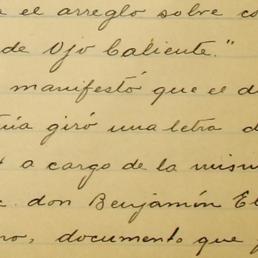 el arreglo sobre
de Ojo Caliente."
manifestó que el
giró una letra
a cargo de la
don Benjamín
documento que